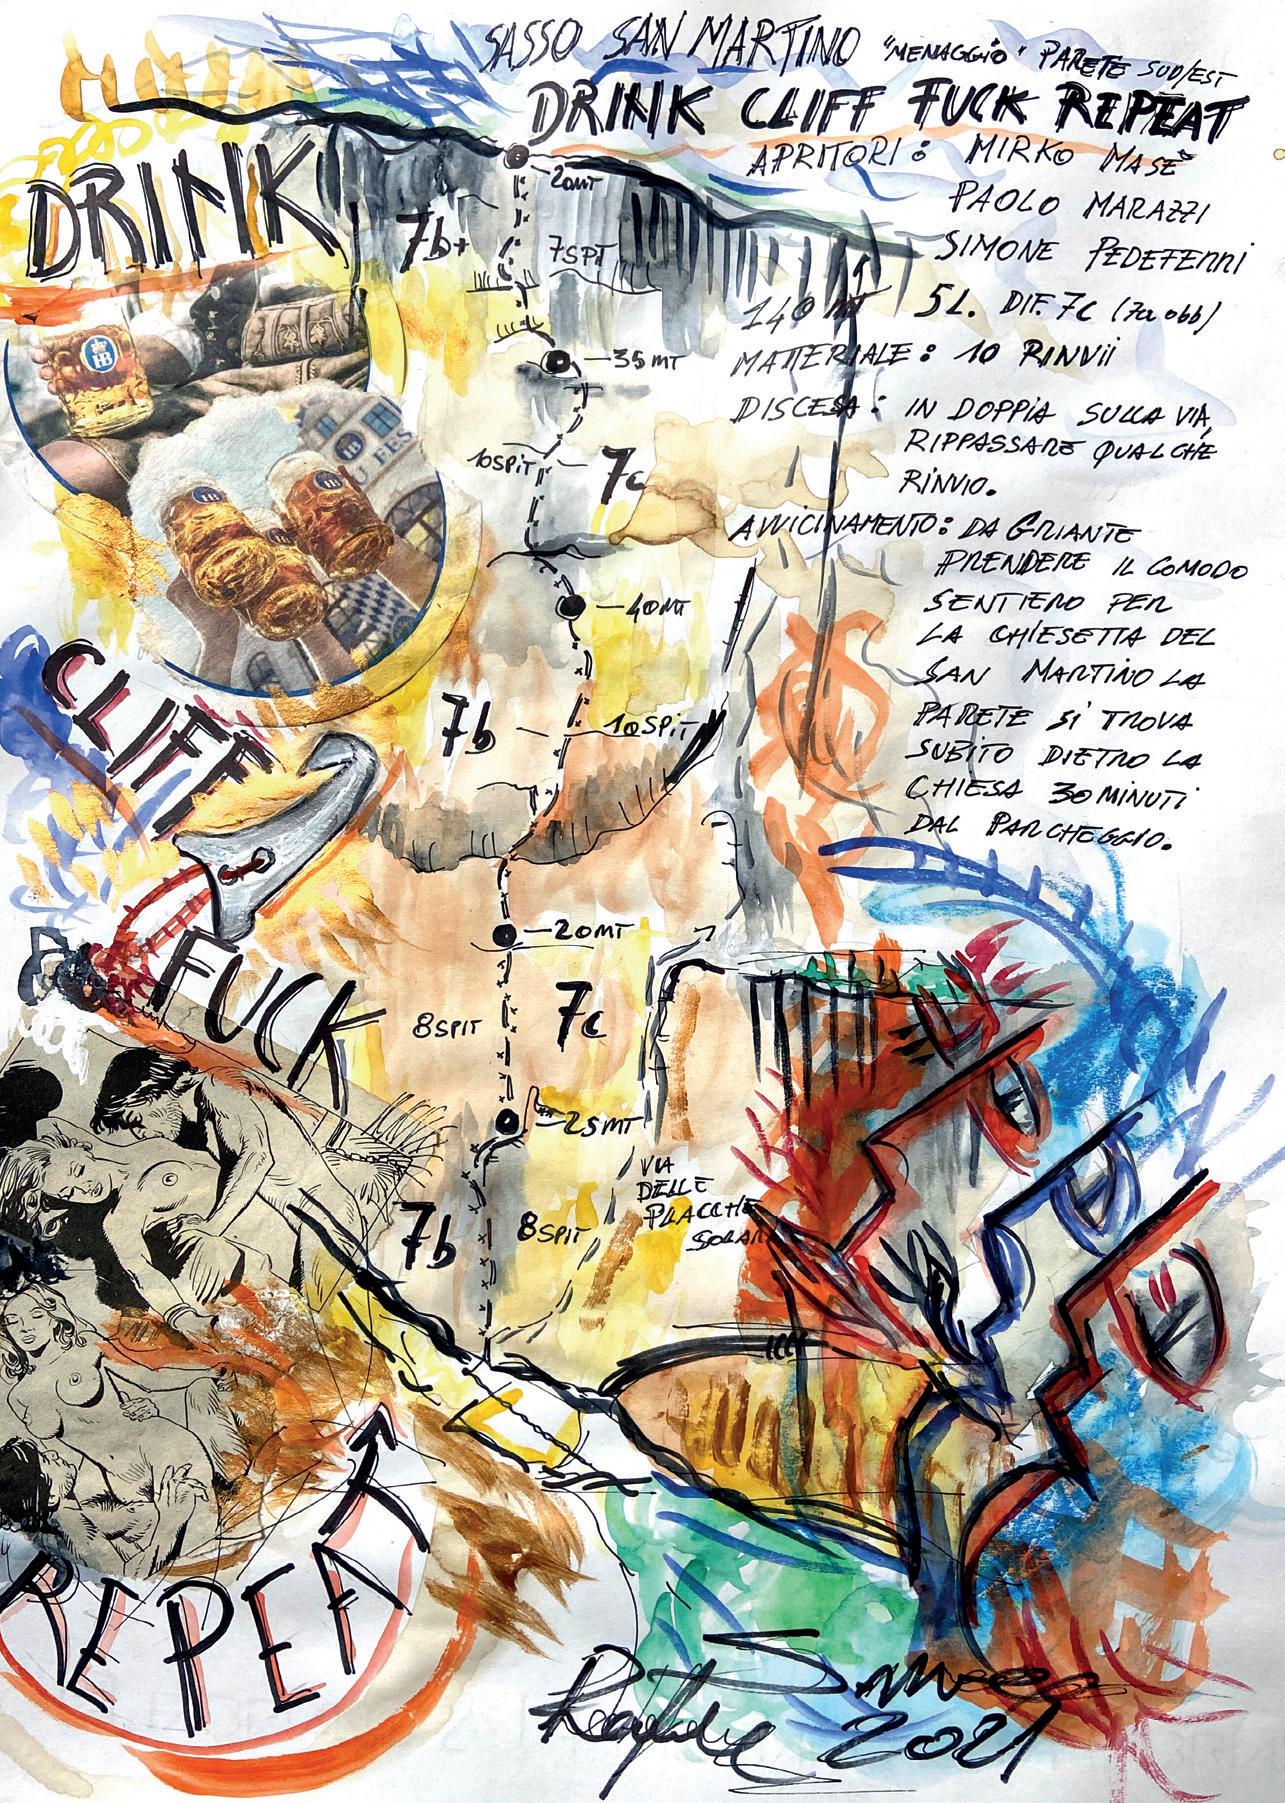 SASSO SAN MARTINO "MENAGGIO" PARETE SUD/EST
DRINK CLIFF FUCK REPEAT
APRITORI: MIRKO MASÈ
PAOLO MARAZZI
SIMONE PEDEFERRI
140 MT 5L. DIF. 7c (7a obb)
MATERIALE: 10 RINVII
DISCESA: IN DOPPIA SULLA VIA,
RIPPASSARE QUALCHE
RINVIO.
AVVICINAMENTO: DA GRIANTE
PRENDERE IL COMODO
SENTIERO PER
LA CHIESETTA DEL
SAN MARTINO LA
PARETE SI TROVA
SUBITO DIETRO LA
CHIESA 30 MINUTI
DAL PARCHEGGIO.
DRINK
HB
CLIFF
FUCK
REPEAT
20MT
7b+
7SPIT
35MT
10SPIT
7c
40MT
7b
10SPIT
20MT
8SPIT
7c
25MT
7b
8SPIT
VIA
DELLE
PLACCHE
SOLARI
2021